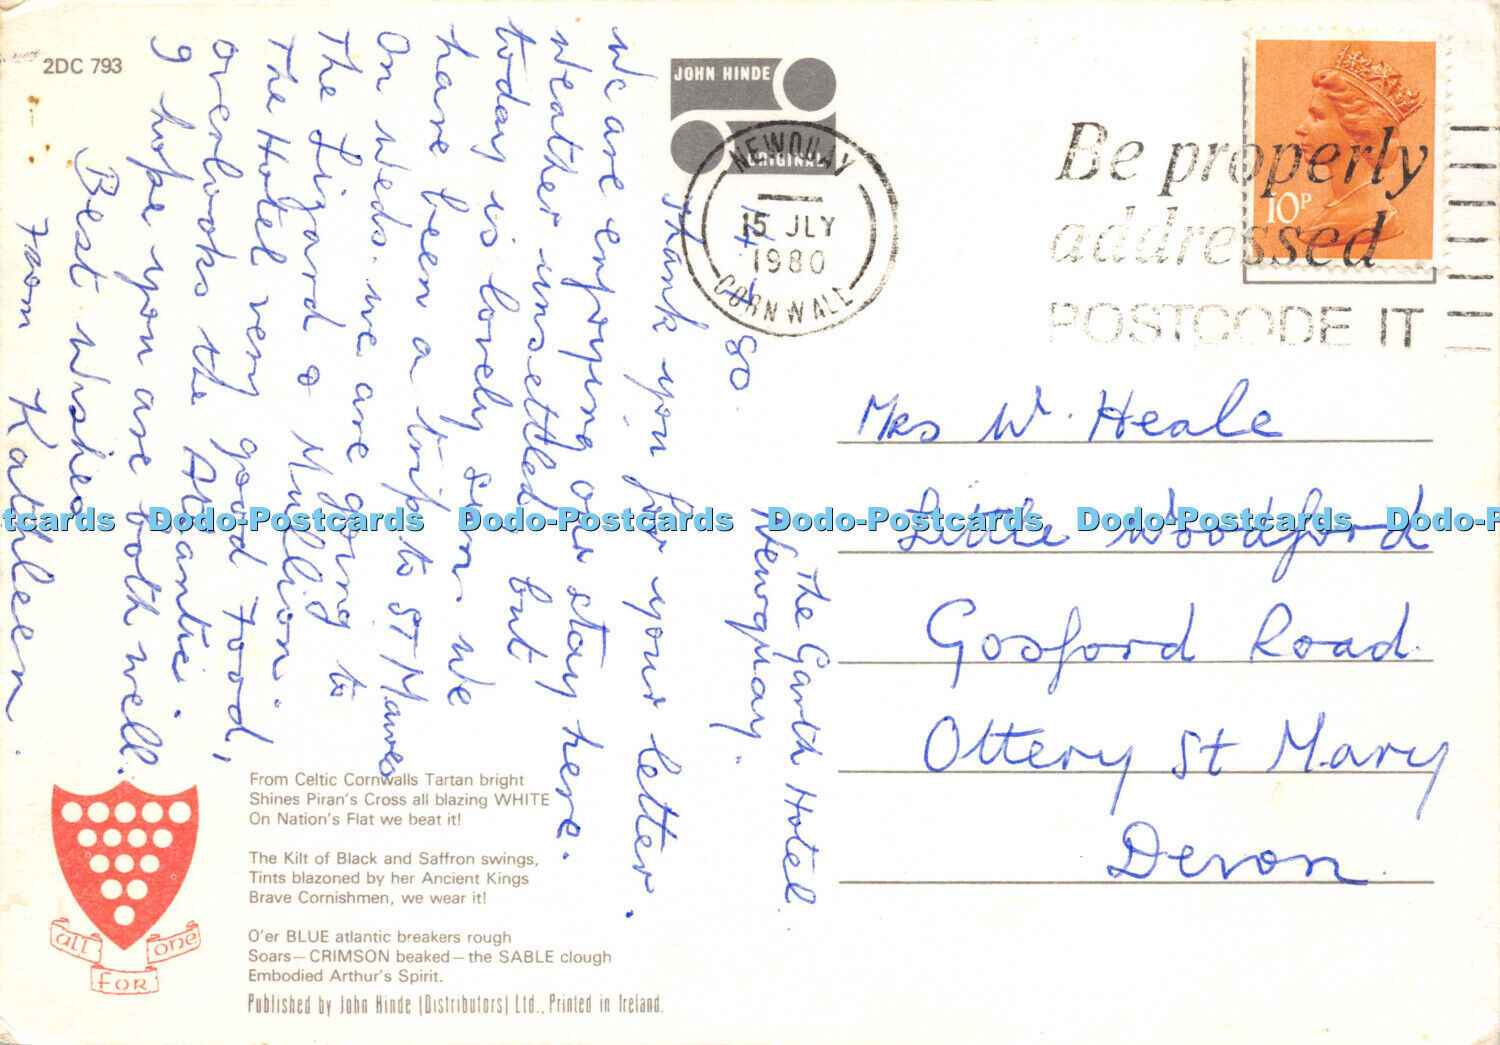 2DC 793
JOHN HINDE
ORIGINAL
NEWQUAY
15 JLY
1980
CORNWALL
Be properly
addressed
POSTCODE IT
10P
The Garth Hotel
Newquay.
14.7.80.
Thank you for your letter.
We are enjoying our stay here.
Weather unsettled but
today is lovely sun. We
have been a trip to ST Mawes
On Weds. we are going to
The Lizard & Mullion.
The Hotel very good Food,
overlooks the Atlantic.
I hope you are both well.
Best Wishes
From Kathleen.
Mrs W. Heale
Little Woodford
Gosford Road.
Ottery St Mary
Devon.
tcards Dodo-Postcards Dodo-Postcards Dodo-Postcards Dodo-Postcards Dodo-Po
From Celtic Cornwalls Tartan bright
Shines Piran's Cross all blazing WHITE
On Nation's Flat we beat it!
The Kilt of Black and Saffron swings,
Tints blazoned by her Ancient Kings
Brave Cornishmen, we wear it!
O'er BLUE atlantic breakers rough
Soars—CRIMSON beaked—the SABLE clough
Embodied Arthur's Spirit.
Published by John Hinde (Distributors) Ltd., Printed in Ireland.
all FOR one